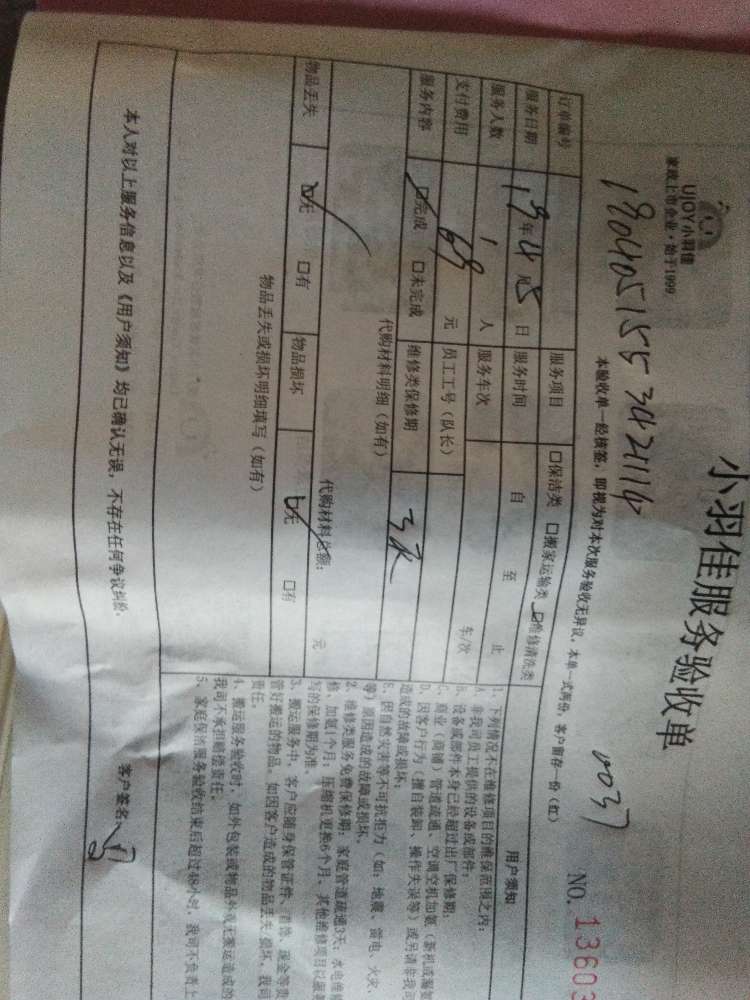 UJOY小羽佳
家政上市企业·始于1999
小羽佳服务验收单
NO. 13603
0037
本验收单一经核签，即视为对本次服务验收无异议，本单一式两份，客户留存一份（红）
订单编号
服务项目 口保洁类 口搬家运输类 口维修清洗类
服务日期 19年4月5日 服务时间 自 至 止
服务人数 1 人 服务车次 车/次
支付费用 69 元 员工工号（队长）
服务内容 口完成 口未完成 维修类保修期 3天
代购材料明细（如有）
代购材料总额： 元
物品丢失 口无 口有 物品损坏 口无 口有
物品丢失或损坏明细填写（如有）
本人对以上服务信息以及《用户须知》均已确认无误，不存在任何争议纠纷。
客户签名：
用户须知
1、下列情况不在维修项目的维保范围之内：
A、非我司员工提供的设备或部件；
B、设备或部件本身已经超过出厂保修期；
C、商业（商铺）管道疏通、空调空机加氨（新机或漏氨
D、因客户行为（擅自装卸、操作失误等）或另请非我司
造成的故障或损坏；
E、因自然灾害等不可抗拒力（如：地震、雷电、火灾、
等）原因造成的故障或损坏。
2、维修类服务免费保修期：家庭管道疏通3天，水电维修
修、加氨1个月，压缩机更换6个月，其他维修项目以服务
写的保修期为准。
3、搬运服务中，客户应随身保管证件、首饰、现金等贵
管好搬运的物品。如因客户造成的物品丢失、损坏，我司
责任。
4、搬运服务验收时，如外包装或物品外观无搬运造成的
我司不承担赔偿责任。
5、家庭保洁服务验收结束后超过48小时，我司不负责上